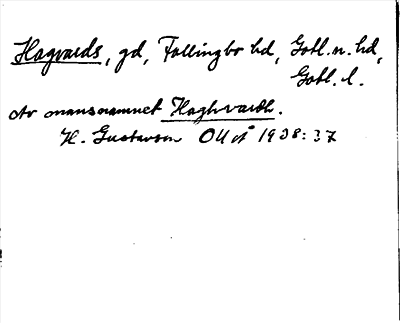 Hagvards, gd, Follingbo sn, Gotl. n. hd,
Gotl. l.
Av mansnamnet Haghvardh.
H. Gustavson OUÅ 1938: 37